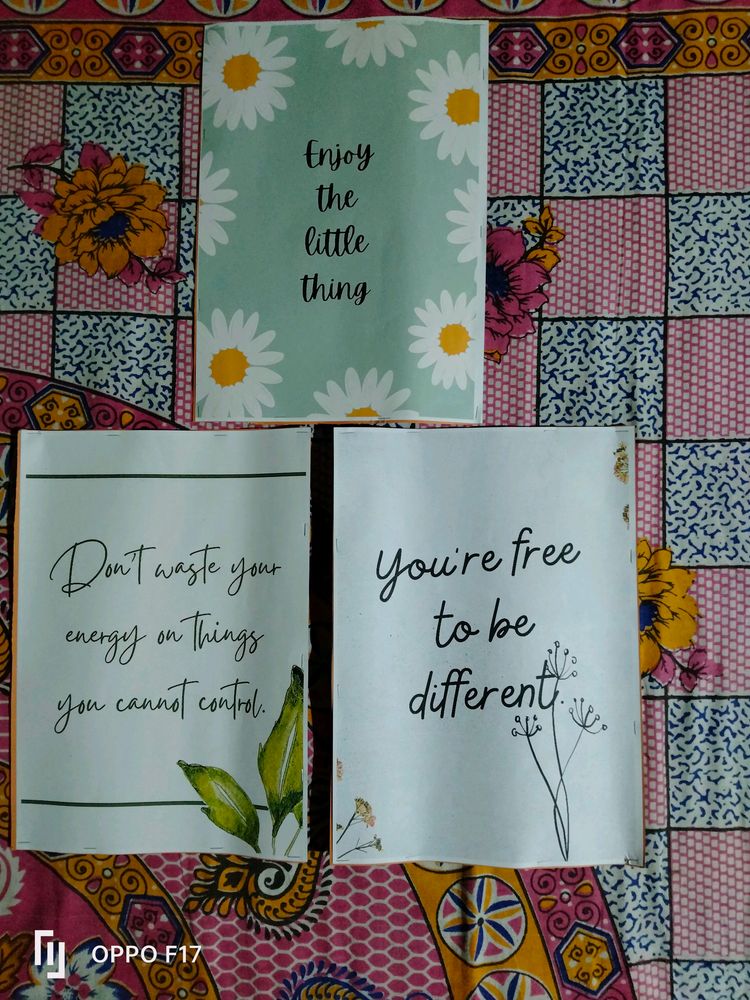 Enjoy
the
little
thing
Don't waste your
energy on things
you cannot control.
You're free
to be
different.
OPPO F17